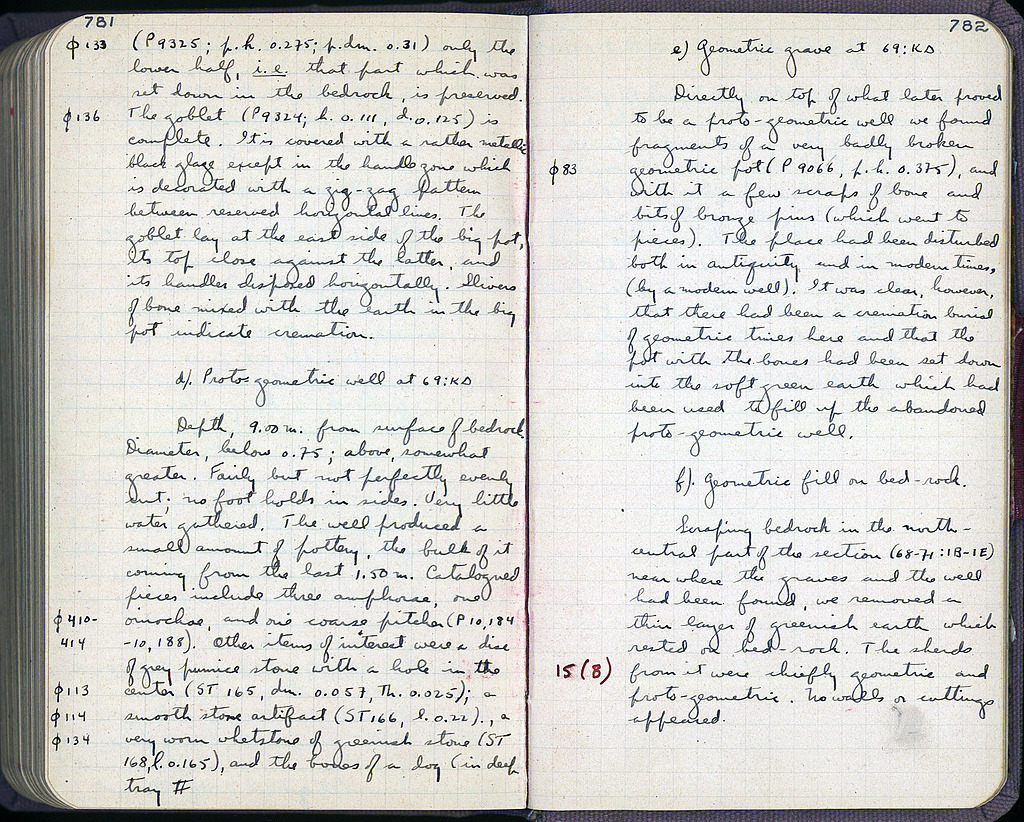 781
φ133 (P9325; p.h. 0.275; p.dm. 0.31) only the
lower half, i.e. that part which was
set down in the bedrock, is preserved.
φ136 The goblet (P9324; h. 0.111, d. 0.125) is
complete. It is covered with a rather metallic
black glaze except in the handle zone which
is decorated with a zig-zag pattern
between reserved horizontal lines. The
goblet lay at the east side of the big pot,
its top close against the latter, and
its handles disposed horizontally. Slivers
of bone mixed with the earth in the big
pot indicate cremation.
d). Proto-geometric well at 69:KD
Depth, 9.00 m. from surface of bedrock.
Diameter, below 0.75; above, somewhat
greater. Fairly but not perfectly evenly
cut; no foot holds in sides. Very little
water gathered. The well produced a
small amount of pottery, the bulk of it
coming from the last 1.50 m. Catalogued
pieces include three amphorae, one
φ410- oinochoe, and one coarse pitcher (P10,184
414 -10,188). Other items of interest were a disc
of grey pumice stone with a hole in the
φ113 center (ST 165, dm. 0.057, Th. 0.025); a
φ114 smooth stone artifact (ST166, l. 0.22)., a
φ134 very worn whetstone of greenish stone (ST
168, l. 0.165), and the bones of a dog (in deep
tray #
782
e) Geometric grave at 69:KD
Directly on top of what later proved
to be a proto-geometric well we found
fragments of a very badly broken
φ83 geometric pot (P 9066, p.h. 0.375), and
with it a few scraps of bone and
bits of bronze pins (which went to
pieces). The place had been disturbed
both in antiquity and in modern times,
(by a modern well). It was clear, however,
that there had been a cremation burial
of geometric times here and that the
pot with the bones had been set down
into the soft green earth which had
been used to fill up the abandoned
proto-geometric well.
f). Geometric fill on bed-rock.
Scraping bedrock in the north-
central part of the section (68-71:IB-IE)
near where the graves and the well
had been found, we removed a
thin layer of greenish earth which
rested on bed-rock. The sherds
15 (8) from it were chiefly geometric and
proto-geometric. No walls or cuttings
appeared.